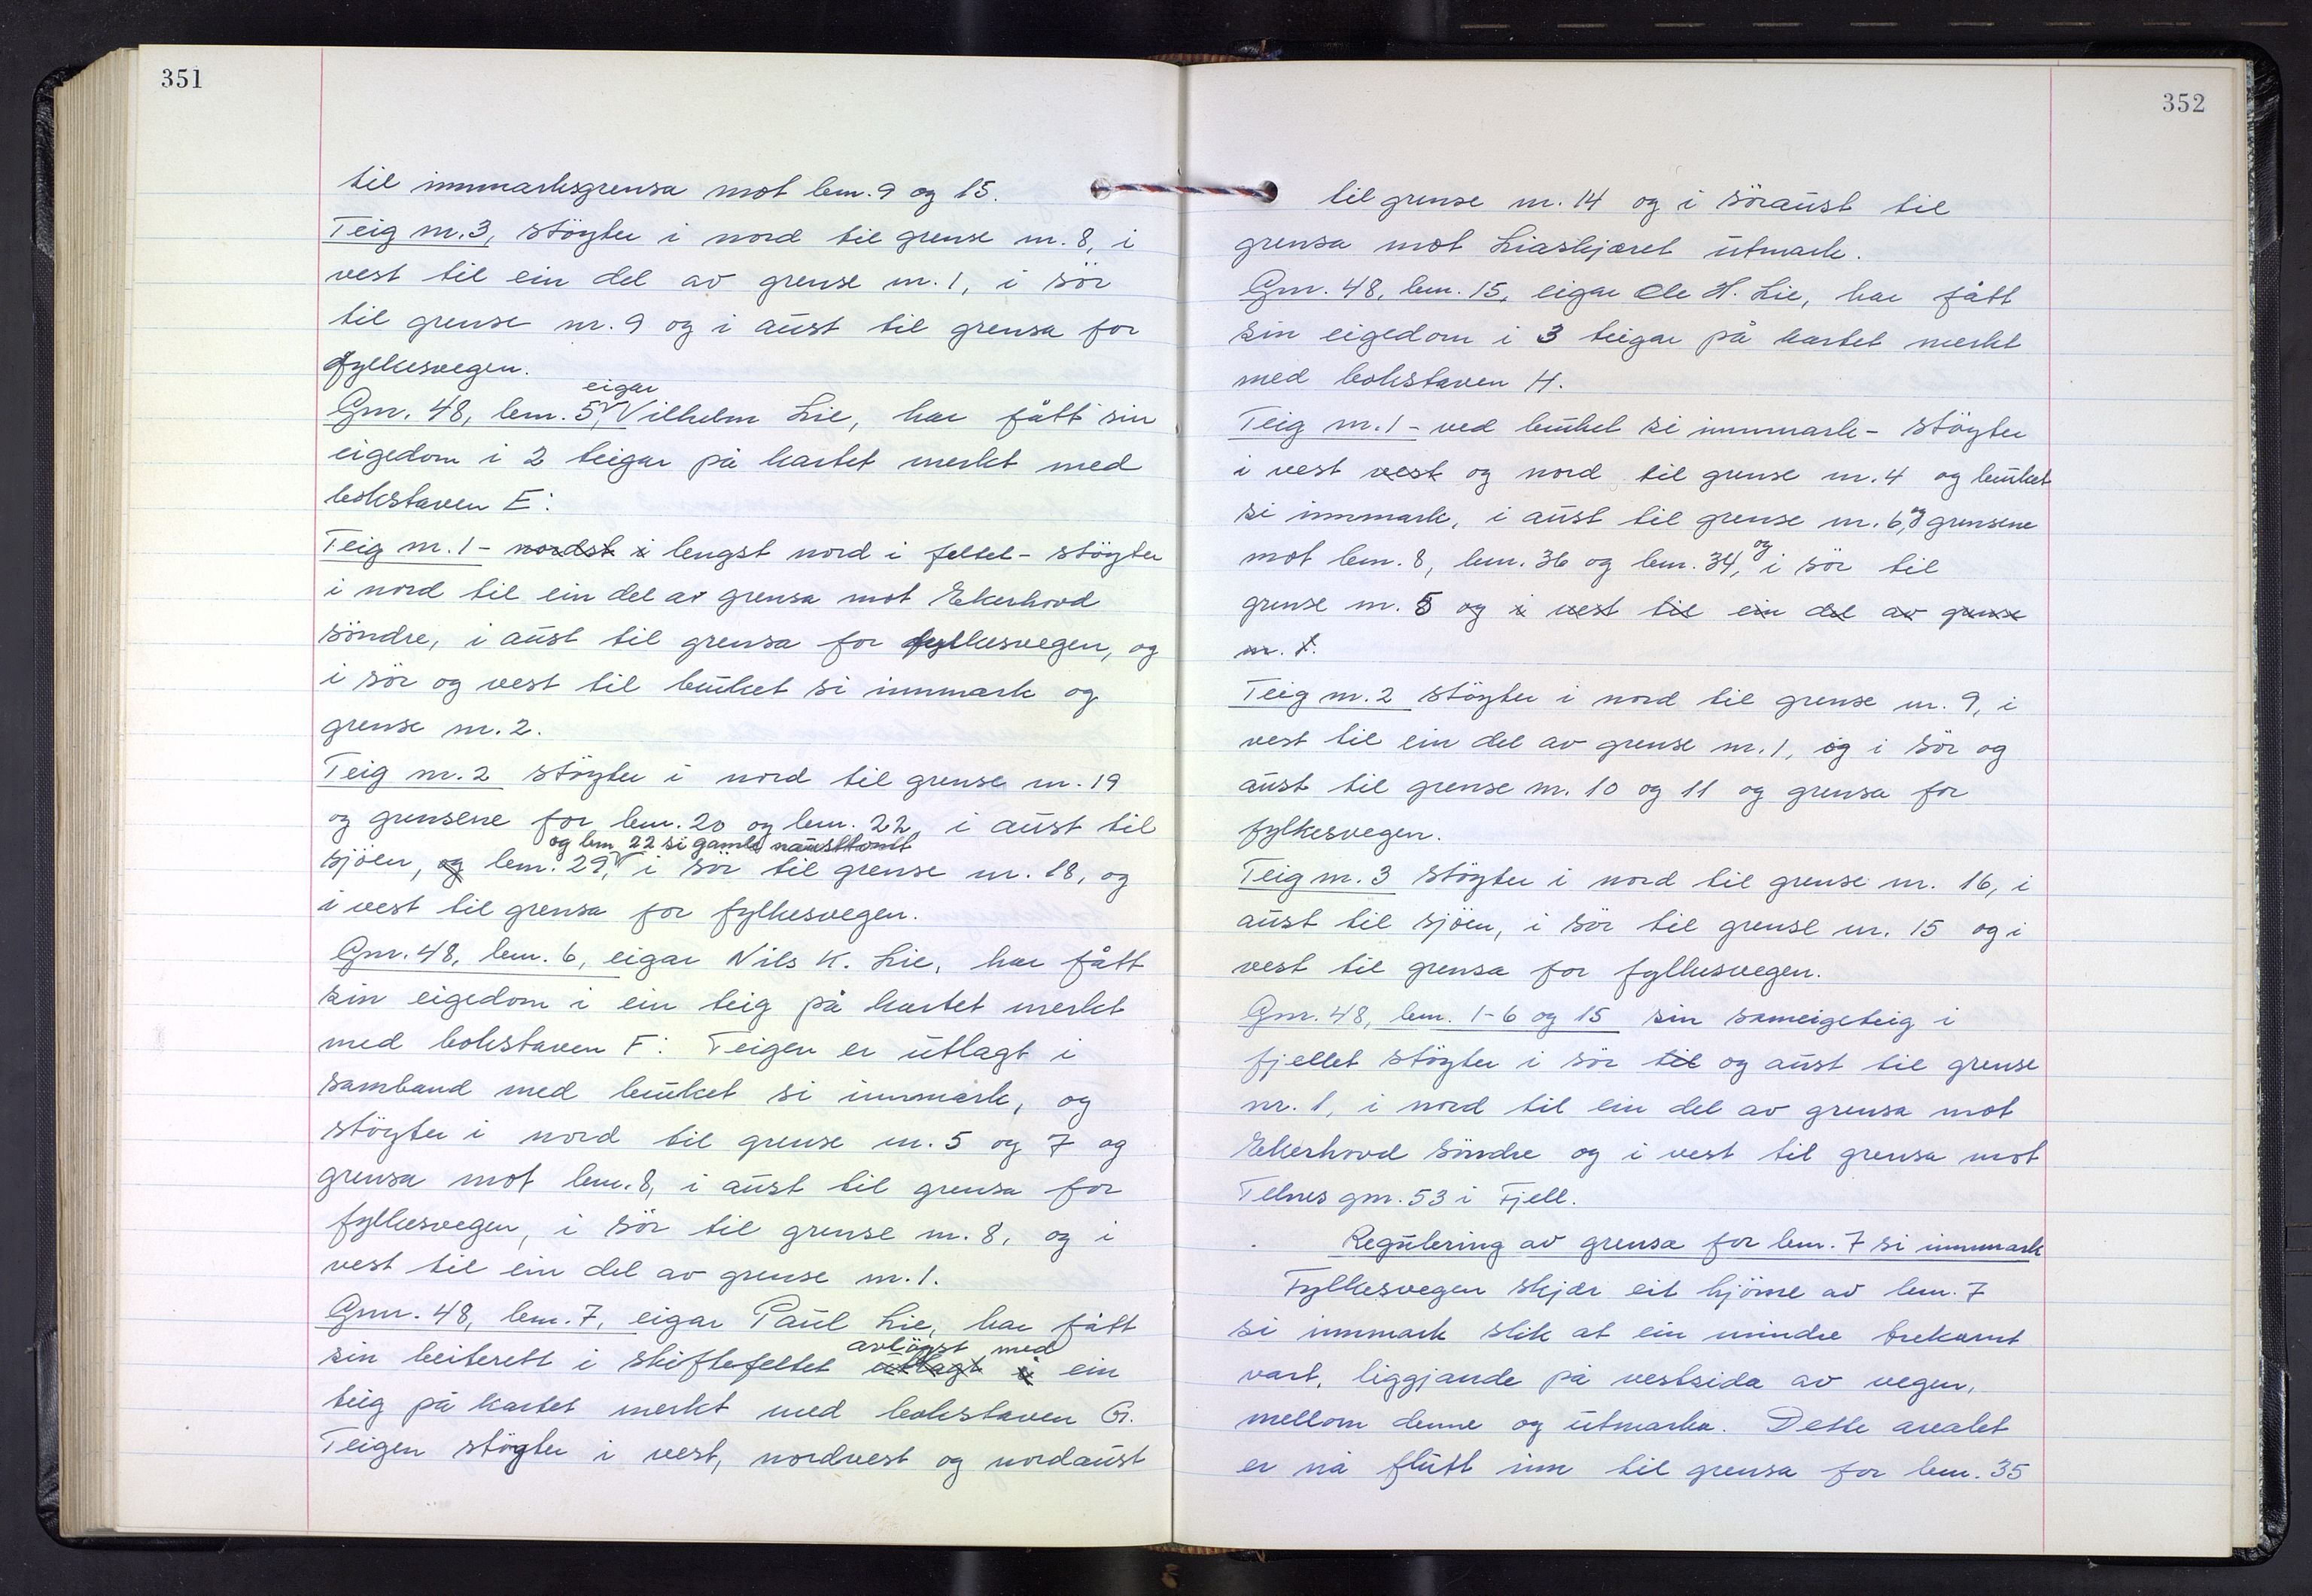 351
til innmarksgrensa mot bnr. 9 og 15.
Teig nr. 3, støyter i nord til grense nr. 8, i
vest til ein del av grense nr. 1, i sör
til grense nr. 9 og i aust til grensa for
fylkesvegen.
eigar
Gnr. 48, bnr. 5, Vilhelm Lie, har fått sin
eigedom i 2 teigar på kartet merkt med
bokstaven E:
Teig nr. 1 - nordst i lengst nord i feltet - stöyter
i nord til ein del av grensa mot Ekerhovd
söndre, i aust til grensa for fylkesvegen, og
i sör og vest til bruket si innmark og
grense nr. 2.
Teig nr. 2 stöyter i nord til grense nr. 19
og grensene for bnr. 20 og bnr. 22, i aust til
og bnr. 22 si gamle nausttomt
sjöen, og bnr. 29, i sör til grense nr. 18, og
i vest til grensa for fylkesvegen.
Gnr. 48, bnr. 6, eigar Nils K. Lie, har fått
sin eigedom i ein teig på kartet merkt
med bokstaven F: Teigen er utlagt i
samband med bruket si innmark, og
stöyter i nord til grense nr. 5 og 7 og
grensa mot bnr. 8, i aust til grensa for
fylkesvegen, i sör til grense nr. 8, og i
vest til ein del av grense nr. 1.
Gnr. 48, bnr. 7, eigar Paul Lie, har fått
avlöyst med
sin beiterett i skiftefeltet utlagt i ein
teig på kartet merkt med bokstaven G.
Teigen stöyter i vest, nordvest og nordaust
352
til grense nr. 14 og i söraust til
grensa mot Liaskjæret utmark.
Gnr. 48, bnr. 15, eigar Ole H. Lie, har fått
sin eigedom i 3 teigar på kartet merkt
med bokstaven H.
Teig nr. 1 - ved bruket si innmark - stöyter
i vest vest og nord til grense nr. 4 og bruket
si innmark, i aust til grense nr. 6, og grensene
mot bnr. 8, bnr. 36 og bnr. 34, og i sör til
grense nr. 5 og i vest til ein del av grense
nr. 1.
Teig nr. 2 stöyter i nord til grense nr. 9, i
vest til ein del av grense nr. 1, og i sör og
aust til grense nr. 10 og 11 og grensa for
fylkesvegen.
Teig nr. 3 stöyter i nord til grense nr. 16, i
aust til sjöen, i sör til grense nr. 15 og i
vest til grensa for fylkesvegen.
Gnr. 48, bnr. 1-6 og 15 sin sameigeteig i
fjellet stöyter i sör til og aust til grense
nr. 1, i nord til ein del av grensa mot
Ekerhovd söndre og i vest til grensa mot
Telnes gnr. 53 i Fjell.
Regulering av grensa for bnr. 7 si innmark
Fylkesvegen skjer eit hjörne av bnr. 7
si innmark slik at ein mindre trekant
vart, liggjande på vestsida av vegen,
mellom denne og utmarka. Dette arealet
er nå flutt inn til grensa for bnr. 35